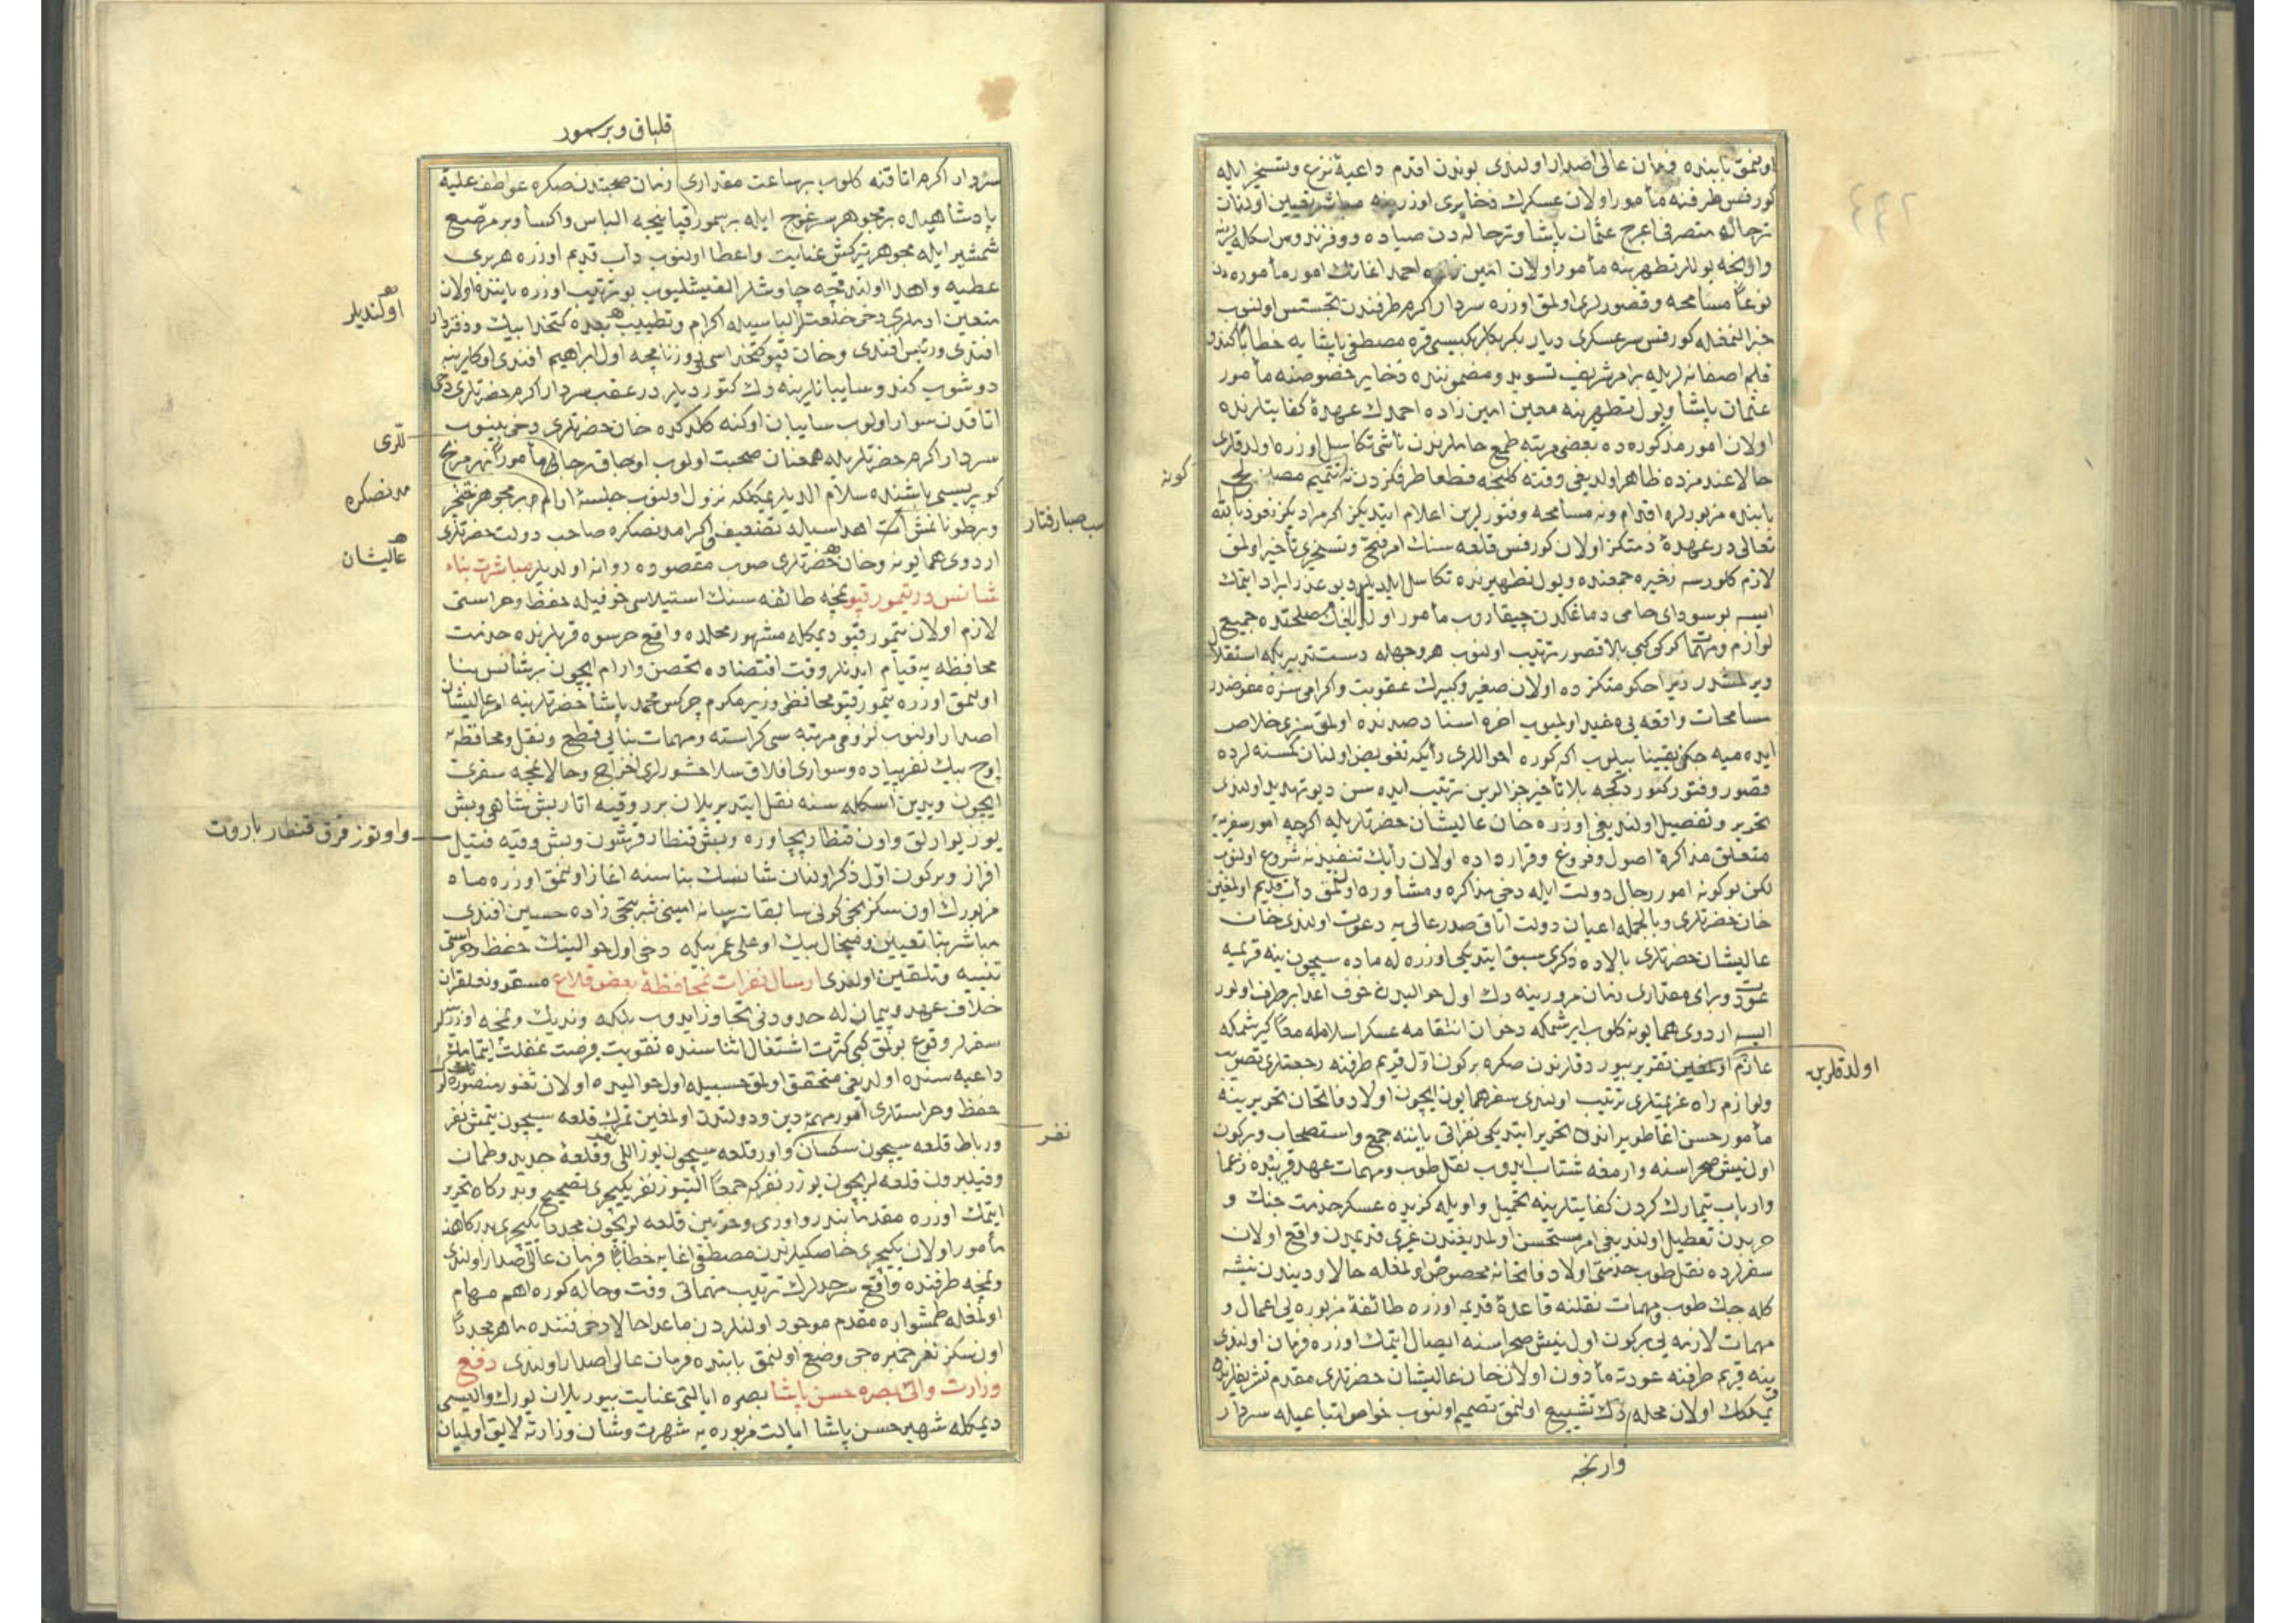 اولنمق بابنده فرمان عالی اصدار اولندی بوندن اقدم داعیهٔ نزع وتسخیر ایله
کورفس طرفنه مأمور اولان عسکرك ذخایری اوزرینه مباشر تعیین اولنان
ترحاله متصرفی اعرج عثمان پاشا وترحاله دن صیاده ووفزندوس اسکله لرینه
وارنجه یوللر تطهیرینه مأمور اولان امین زاده احمد اغانك امور مأموره دن
نوعاً مسامحه وقصورلری اولمق اوزره سردار اکرم طرفندن تجسس اولنوب
خبر النمغله کورفس سرعسکری دیار بکر بکلربکیسی قره مصطفی پاشا یه خطاباً کندو
قلم اصفانه لریله بر امر شریف تسوید ومضموننده ذخایر خصوصنه مأمور
عثمان پاشا ویول تطهیرینه معین امین زاده احمدك عهدهٔ کفایتلرنده
اولان امور مذکوره ده بعضی مرتبه طمع خاملرندن ناشی تکاسل اوزره اولدقلری
حالا عندمزده ظاهر اولدیغی وقته کلنجه قطعا طرفکزدن نه تتمیم مصلحت
کونه
بابنده مزبورلره اقدام ونه مسامحه وفتورلرین اعلام ایتدیکز اکر مرادیکز نعوذ بالله
تعالی در عهدهٔ ذمتکز اولان کورفس قلعه سنك امر فتح وتسخیری تأخیر اولمق
لازم کلورسه ذخیره جمعنده ویول تطهیرنده تکاسل ایلدیلر دیو عذر ایراد ایتمك
ایسه بو سودای خامی دماغکدن چیقاروب مأمور اولدیغك مصلحتده جمیع
لوازم ومهماتك کرکی کبی بلا قصور ترتیب اولنوب هر وجهله دست تدبیریکه استقلال
ویرلمشدر زیرا حکومتکزده اولان صغیر وکبیرك عقوبت واکرامی سزه مفوضدر
مسامحات واقعه یی غیر اولمیوب اخره اسناد صددنده اولمق سزی خلاص
ایده میه جکنی یقیناً بیلوب اکا کوره احواللری رأیکه تفویض اولنان کمسنه لرده
قصور وفتور کتوردکجه بلا تأخیر جزالرین ترتیب ایده سن دیو تهدید اولندی
تحریر وتفصیل اولندیغی اوزره خان عالیشان حضرتلریله اکرچه امور سفریه یه
متعلق مذاکرهٔ اصول وفروغ وقرار داده اولان رأیك تنفیذینه شروع اولنوب
لکن بو کونه امور رجال دولت ایله دخی مذاکره ومشاوره اولنمق دأب قدیم اولمغین
خان حضرتلری وبالجمله اعیان دولت اتاق صدر عالی یه دعوت اولندی خان
عالیشان حضرتلری بالاده ذکری سبق ایتدیکی اوزره له ماده سیچون ینه قریمه
عودت وبرای مقداری زمان مرورینه دك اول حوالیدن خوف اعدا برطرف اولور
ایسه اردوی همایونه کلوب ایرشمکه دخوان انتقامه عسکر اسلامله معاً کیرشمکه
عازم اولمغین تقریر بیوردقلرندن صکره برکون اول قریم طرفنه رجعتلری تصویب
اولدقلرین
ولوازم راه عزیمتلری ترتیب اولندی سفر همایون ایچون اولاد فاتحان تحریرینه
مأمور حسن اغا طوپراندن تحریر ایتدیکی نفراتی یاننه جمع واستصحاب وبرکون
اول نیش صحراسنه وارمغه شتاب ایدوب نقل طوپ ومهمات عهد قریبده زعما
وارباب تیمارك کردن کفایتلرینه تحمیل واویله کزیده عسکر خدمت جنك و
حربدن تعطیل اولندیغی امر مستحسن اولمدیغندن غیری قدیمدن واقع اولان
سفرلرده نقل طوپ خدمتی اولاد فاتحانه مخصوص اولمغله حالا ودیندن نیشه
کله جك طوپ ومهمات نقلنه قاعدهٔ قدیمه اوزره طائفهٔ مزبوره یی اعمال و
مهمات لازمه یی برکون اول نیش صحراسنه ایصال ایتمك اوزره فرمان اولندی
ینه قریم طرفنه عودته مأذون اولان خان عالیشان حضرتلری مقدم تشریفلرنده
یمکلك اولان محله دك تشییع اولنمق تصمیم اولنوب خواص اتباعیله سردار
وارنجه
قلپاق وبر سمور
سردار اکرم اتاقنه کلوب بر ساعت مقداری زمان صحبتدن صکره عواطف علیهٔ
پادشاهیدن بر مجوهر سرغوج ایله بر سمور قپانیجه الباس واکسا وبر مرصع
شمشیر ایله مجوهر ترکش عنایت واعطا اولنوب دأب قدیم اوزره هر بری
عطیه واهدا اولندقچه چاوشلر القیشلیوب بو ترتیب اوزره یاننده اولان
اولندیلر
متعین ادملری دخی خلعتلر الباسیله اکرام وتطییب بعده کتخدا بیك ودفتردار
افندی ورئیس افندی وخان قپو کتخداسی روزنامچه اول ابراهیم افندی اوکلرینه
دوشوب کندو سایبانلرینه دك کتوردیلر در عقب سردار اکرم حضرتلری دخی
اتاقدن سوار اولوب سایبان اوکنه کلدکده خان حضرتلری دخی بنوب
لری
سردار اکرم حضرتلریله همعنان صحبت اولوب اوجاق رجالی مأموراً نهر مریج
کوپریسی باشنده سلام الدیلر یمکلکه نزول اولنوب جلسهٔ ارام وبر مجوهر خنجر
مدنصکره
سبـ صبا رفتار
وبر طونانمش آت اهداسیله تضعیف اکرامدنصکره صاحب دولت حضرتلری
اردوی همایونه وخان حضرتلری صوب مقصوده روانه اولدیلر مباشرت بناء
عالیشان
شانس در تیمور قپو نمچه طائفه سنك استیلاسی خوفیله حفظ وحراستی
لازم اولان تیمور قپو دیمکله مشهور محلده واقع حرسوه قربلرنده خدمت
محافظه یه قیام ایدنلر وقت اقتضاده تحصن وارام ایچون بر شانس بنا
اولنمق اوزره تیمور قپو محافظی وزیر مکرم چرکس محمد پاشا حضرتلرینه امر عالیشان
اصدار اولنوب لزومی مرتبه سی کراسته ومهمات بنایی قطع ونقل ومحافظه یه
اوچ بیك نفر پیاده وسواری افلاق سلاحشورلری اخراج وحالا نمچه سفری
ایچون ویدین اسکله سنه نقل ایتدیریلان برر وقیه اتار بش شاهی وبش
یوز یوارلق واون قنطار پچاوره وبش قنطار قرشون وبش وقیه فتیل
واوتوز قرق قنطار باروت
افراز وبرکون اول ذکر اولنان شانسك بناسنه اغاز اولنمق اوزره ماه
مزبورك اون سکزنجی کونی سابقا ترسانه امینی شربتجی زاده حسین افندی
مباشر بنا تعیین ومیخال بیك اوغلی عمر بیکه دخی اول حوالینك حفظ وحراستی
تنبیه وتلقین اولندی ارسال نفرات بمحافظهٔ بعض قلاع مسقو ونعلقران
خلاف عهد وپیمان له حدودنی تجاوز ایدوب بلکه وندیك ونمچه اوزرینه
سفرلر وقوع بولمق کبی کثرت اشتغال اثناسنده تقویت فرصت غفلت ایتمامك
داعیه سنده اولدیغی متحقق اولمق حسبیله اول حوالیده اولان ثغور منصوره لر
حفظ وحراستلری امور مهمهٔ دین ودولتدن اولمغین تمرك قلعه سیچون یتمش نفر
نفر
ورباط قلعه سیچون سکسان واور قلعه سیچون یوز اللی وقلعهٔ جدید وطمان
وقیلبرون قلعه لریچون یوزر نفر که جمعاً التیوز نفر یکیچری تصحیح وبدرکاه تحریر
ایتمك اوزره مقدما بندر واوزی وخوتین قلعه لریچون مجدداً یکیچری بدرکاهنه
مأمور اولان یکیچری خاصکیلرندن مصطفی اغایه خطاباً فرمان عالی اصدار اولندی
ونمچه طرفنده واقع سرحدلرك ترتیب مهماتی وقت وحاله کوره اهم مهام
اولمغله طمشواره مقدم موجود اولنلردن ماعدا حالا دخی فننده ماهر مجدداً
اون سکز نفر خمبره جی وضع اولنمق بابنده فرمان عالی اصدار اولندی رفع
وزارت والی بصره حسن پاشا بصره ایالتی عنایت بیوریلان یورك والیسی
دیمکله شهیر حسن پاشا ایالت مزبوره یه شهرت وشان وزارته لایق اولمیان